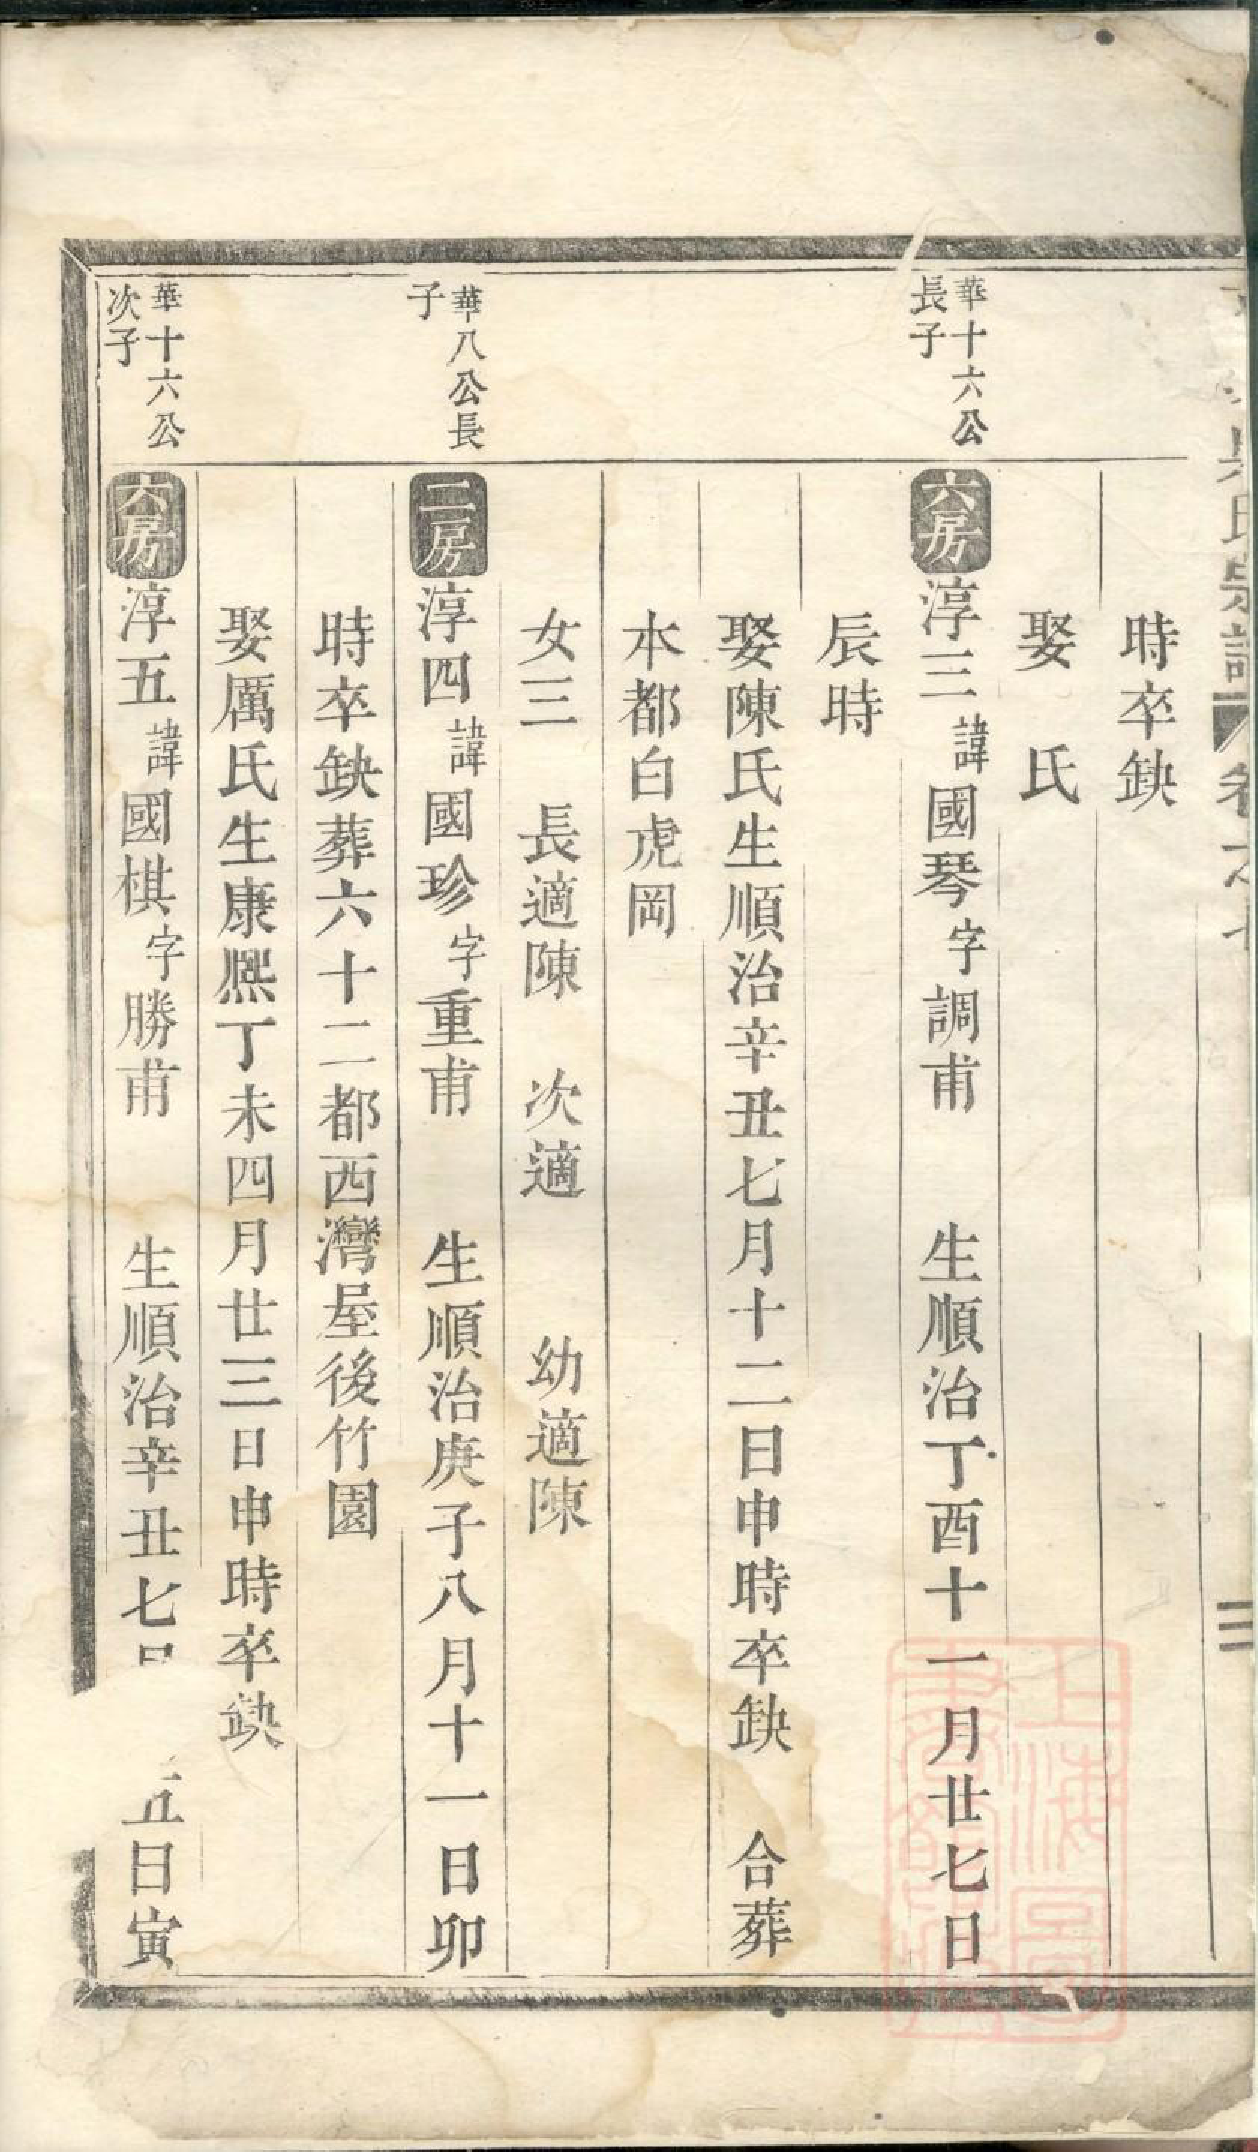 時卒缺
娶　氏
華十六公
長子
六房淳三諱國琴字調甫　生順治丁酉十一月廿七日
辰時
娶陳氏生順治辛丑七月十二日申時卒缺　合葬
本都白虎岡
女三　長適陳　次適　　幼適陳
華八公長
子
二房淳四諱國珍字重甫　生順治庚子八月十一日卯
時卒缺葬六十二都西灣屋後竹園
娶厲氏生康熙丁未四月廿三日申時卒缺
華十六公
次子
六房淳五諱國棋字勝甫　生順治辛丑七　五日寅
氏宗譜
卷之七
三
上海圖書館藏